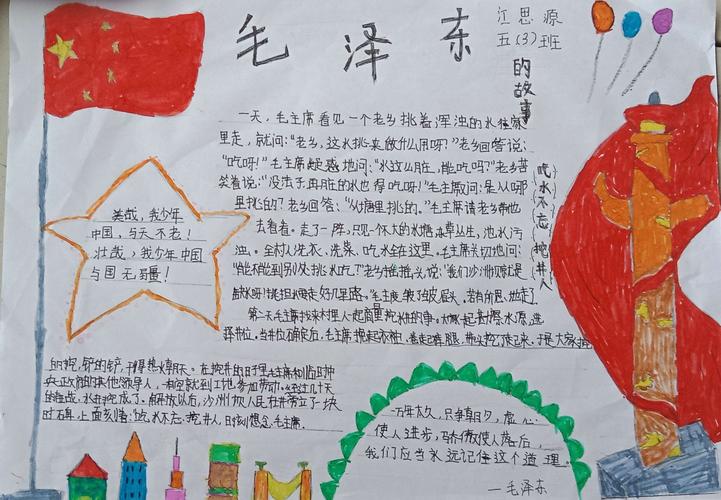 毛泽东
的故事
江思源
五(3)班
吃水不忘挖井人
一天，毛主席看见一个老乡挑着浑浊的水往家
里走，就问："老乡，这水挑来做什么用呀？"老乡回答说：
"吃呀！"毛主席疑惑地问："水这么脏，能吃吗？"老乡苦
笑着说："没法子，再脏的水也得吃呀！"毛主席又问：是从哪
里挑的？老乡回答："从塘里挑的。"毛主席请老乡带他
去看看。走了一阵，只见一个不大的水塘，杂草丛生，池水污
浊。全村人洗衣、洗菜、吃水全在这里。毛主席关切地问：
"能不能到别处挑水吃？"老乡摇摇头，说："我们沙洲坝就是
缺水呀！挑担水要走好几里路。"毛主席皱了皱眉头，若有所思地走了
第二天毛主席找来村里人一起商量挖水井的事。
择井位。当井位确定后，毛主席挽起衣袖，卷起裤腿，带头挖了起来。于是大家挖
的挖，铲的铲，干得热火朝天。在挖井的日子里，毛主席和临时中
央政府的其他领导人，一有空就到工地参加劳动。经过几十天
的奋战，水井挖成了。解放以后，沙洲坝人民在井旁立了一块
时石碑，上面刻着：吃水不忘挖井人，时刻想念毛主席。
美哉，我少年
中国，与天不老！
壮哉，我少年中国
与国无疆！
一万年太久，只争朝夕，虚心
使人进步，骄傲使人落后，
我们应当永远记住这个道理。
—毛泽东